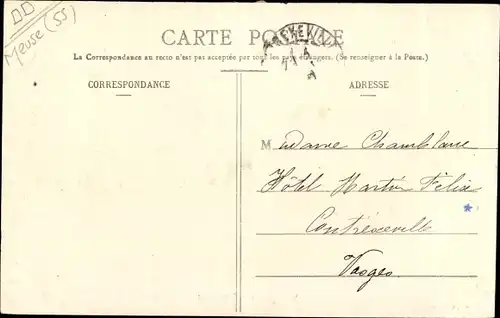 Meuse (55)
CARTE POSTALE
La Correspondance au recto n'est pas acceptée par tous les pays étrangers. (Se renseigner à la Poste.)
CORRESPONDANCE
ADRESSE
Madame Chamblane
Hôtel Martin Félix
Contrexeville
Vosges